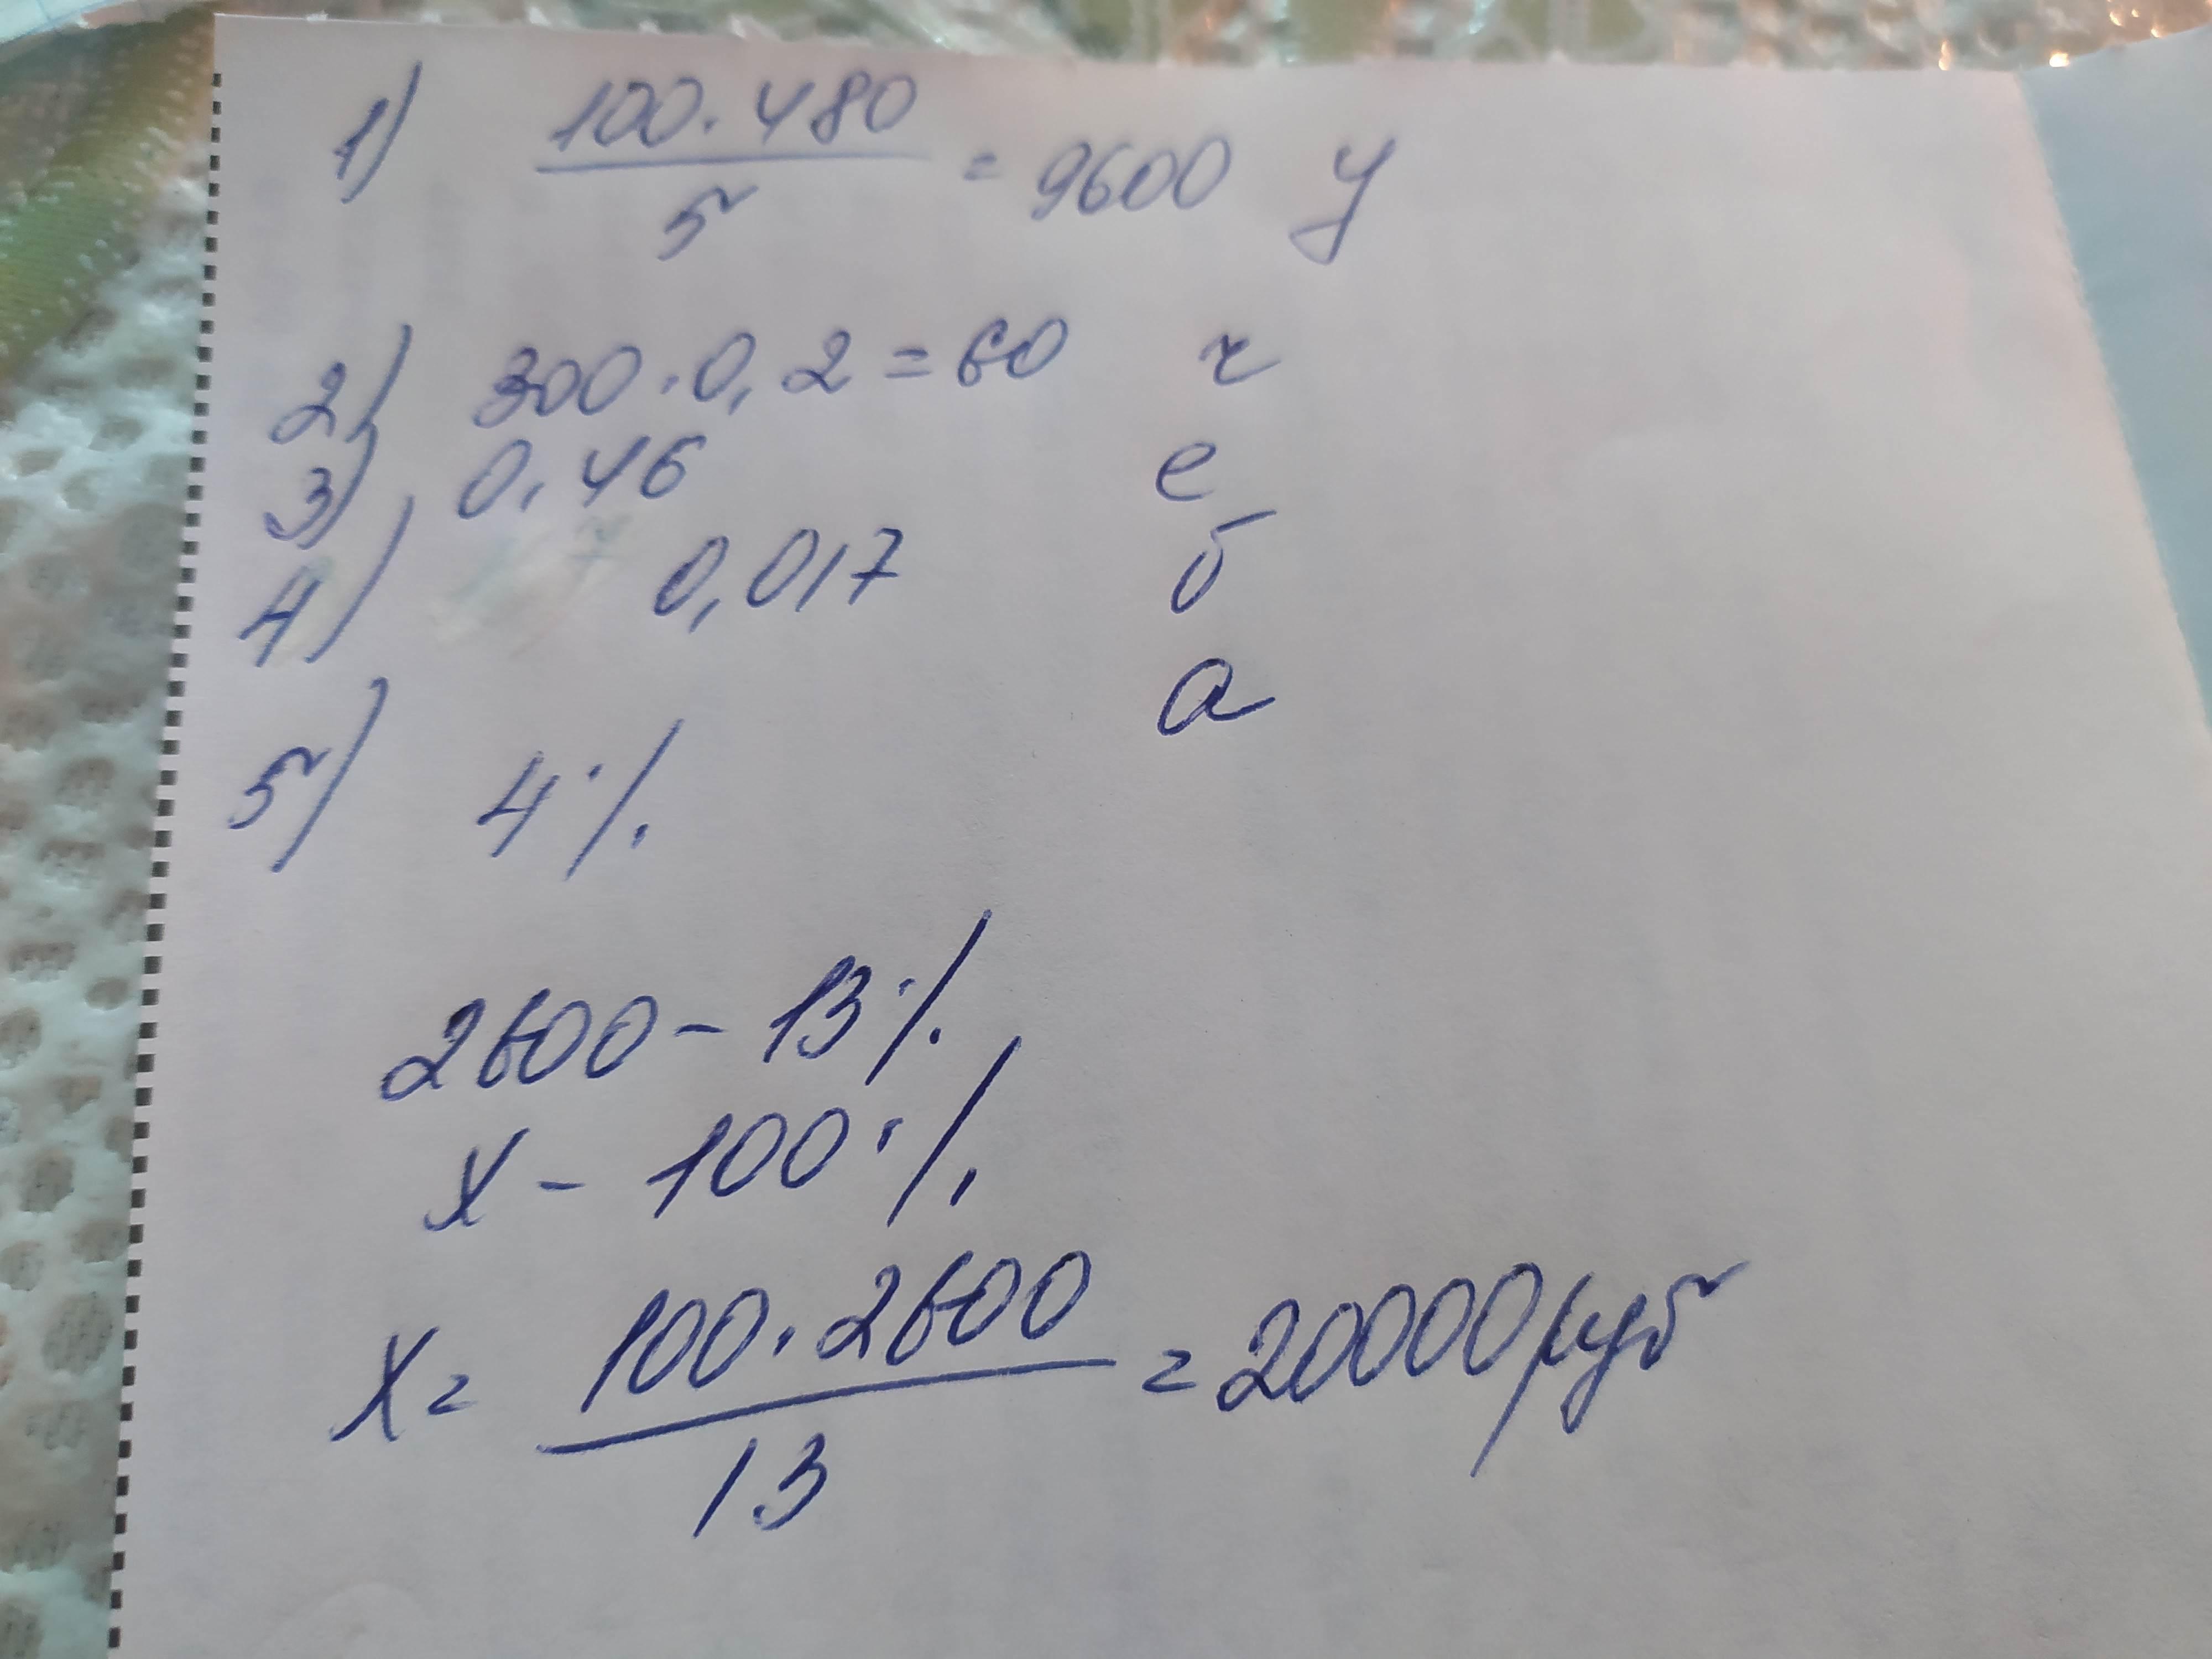 1) 100·480
5
= 9600 у
2) 300·0,2=60 ч
3) 0,46 е
4) 0,017 б
а
5) 4%
2600 - 13%
х - 100%
х = 100·2600
13
= 20000 руб